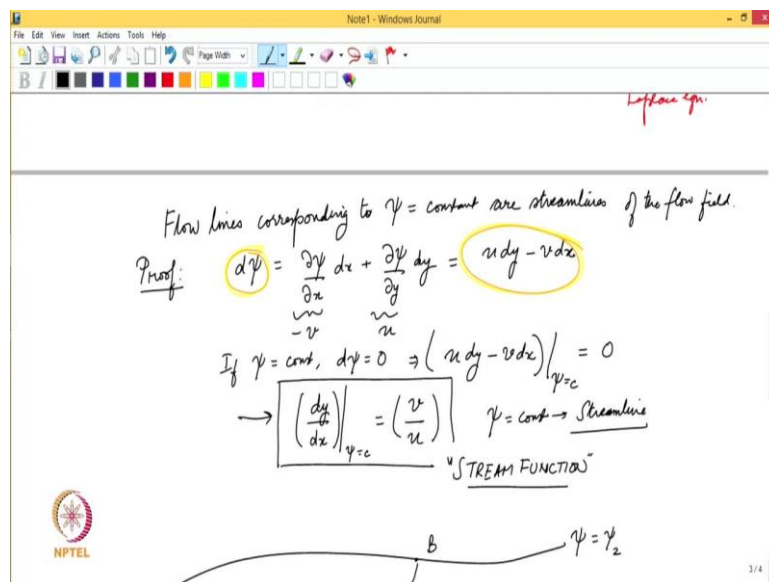 Note1 - Windows Journal
File Edit View Insert Actions Tools Help
Page Width
B I
Laplace eqn.
Flow lines corresponding to ψ = constant are streamlines of the flow field.
Proof: dψ = ∂ψ/∂x dx + ∂ψ/∂y dy = u dy - v dx
-v u
If ψ = const, dψ = 0 ⇒ (u dy - v dx)|ψ=c = 0
→ (dy/dx)|ψ=c = (v/u) ψ = const → Streamline
"STREAM FUNCTION"
B ψ = ψ₂
NPTEL
3/4